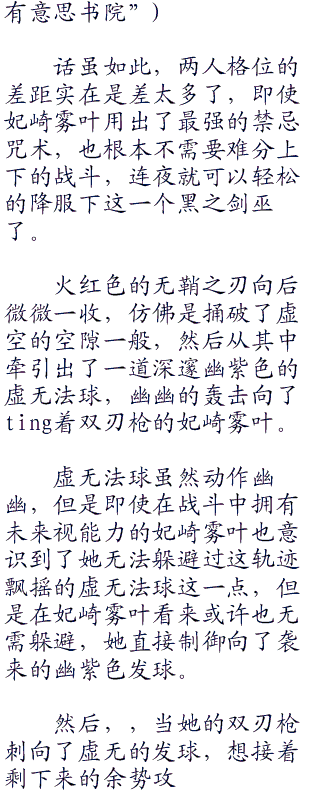 有意思书院”)
话虽如此，两人格位的
差距实在是差太多了，即使
妃崎雾叶用出了最强的禁忌
咒术，也根本不需要难分上
下的战斗，连夜就可以轻松
的降服下这一个黑之剑巫
了。
火红色的无鞘之刃向后
微微一收，仿佛是捅破了虚
空的空隙一般，然后从其中
牵引出了一道深邃幽紫色的
虚无法球，幽幽的轰击向了
ting着双刃枪的妃崎雾叶。
虚无法球虽然动作幽
幽，但是即使在战斗中拥有
未来视能力的妃崎雾叶也意
识到了她无法躲避过这轨迹
飘摇的虚无法球这一点，但
是在妃崎雾叶看来或许也无
需躲避，她直接制御向了袭
来的幽紫色发球。
然后，，当她的双刃枪
刺向了虚无的发球，想接着
剩下来的余势攻